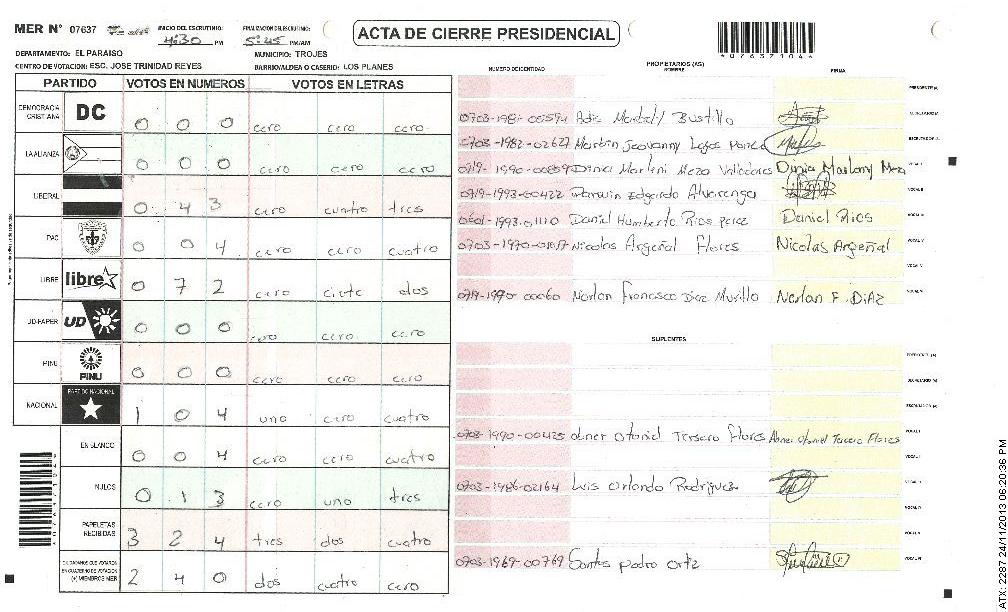 MER N° 07637
INICIO DEL ESCRUTINIO: 4:30 PM
FINALIZACION DEL ESCRUTINIO: 5:45 PM/AM
ACTA DE CIERRE PRESIDENCIAL
DEPARTAMENTO: EL PARAISO
MUNICIPIO: TROJES
CENTRO DE VOTACION: ESC. JOSE TRINIDAD REYES
BARRIO/ALDEA O CASERIO: LOS PLANES
PARTIDO VOTOS EN NUMEROS VOTOS EN LETRAS
DEMOCRACIA CRISTIANA DC 0 0 0 cero cero cero
LA ALIANZA 0 0 0 cero cero cero
LIBERAL 0 4 3 cero cuatro tres
PAC 0 0 4 cero cero cuatro
LIBRE libre 0 7 2 cero ciete dos
UD-FAPER UD 0 0 0 cero cero cero
PINU PINU 0 0 0 cero cero cero
NACIONAL PARTIDO NACIONAL 1 0 4 uno cero cuatro
EN BLANCO 0 0 4 cero cero cuatro
NULOS 0 1 3 cero uno tres
PAPELETAS RECIBIDAS 3 2 4 tres dos cuatro
CIUDADANOS QUE VOTARON EN CUADERNO DE VOTACION (+) MIEMBROS MER 2 4 0 dos cuatro cero
NUMERO DE IDENTIDAD PROPIETARIOS (AS) NOMBRE FIRMA
PRESIDENTE (A)
Bustillo SECRETARIO (A)
0703-1982-02627 Geovanny Lagos Ponce ESCRUTADOR (A)
Meza Valladares VOCAL I
0719-1993-00422 Darwin Edgardo Alvarenga VOCAL II
Daniel Humberto Rios Perez Daniel Rios VOCAL III
Nicolas Argeñal Flores Nicolas Argeñal VOCAL IV
VOCAL V
0719-1990-00060 Norlan Francisco Diaz Murillo Norlan F. DiAZ VOCAL VI
SUPLENTES
PRESIDENTE (A)
SECRETARIO (A)
ESCRUTADOR (A)
0703-1990-00435 Flores Flores VOCAL I
0703-1986-02164 Luis Orlando Rodriguez
0703-1969-00769 Santos pedro Ortiz
ATX: 2287 24/11/2013 06:20:36 PM